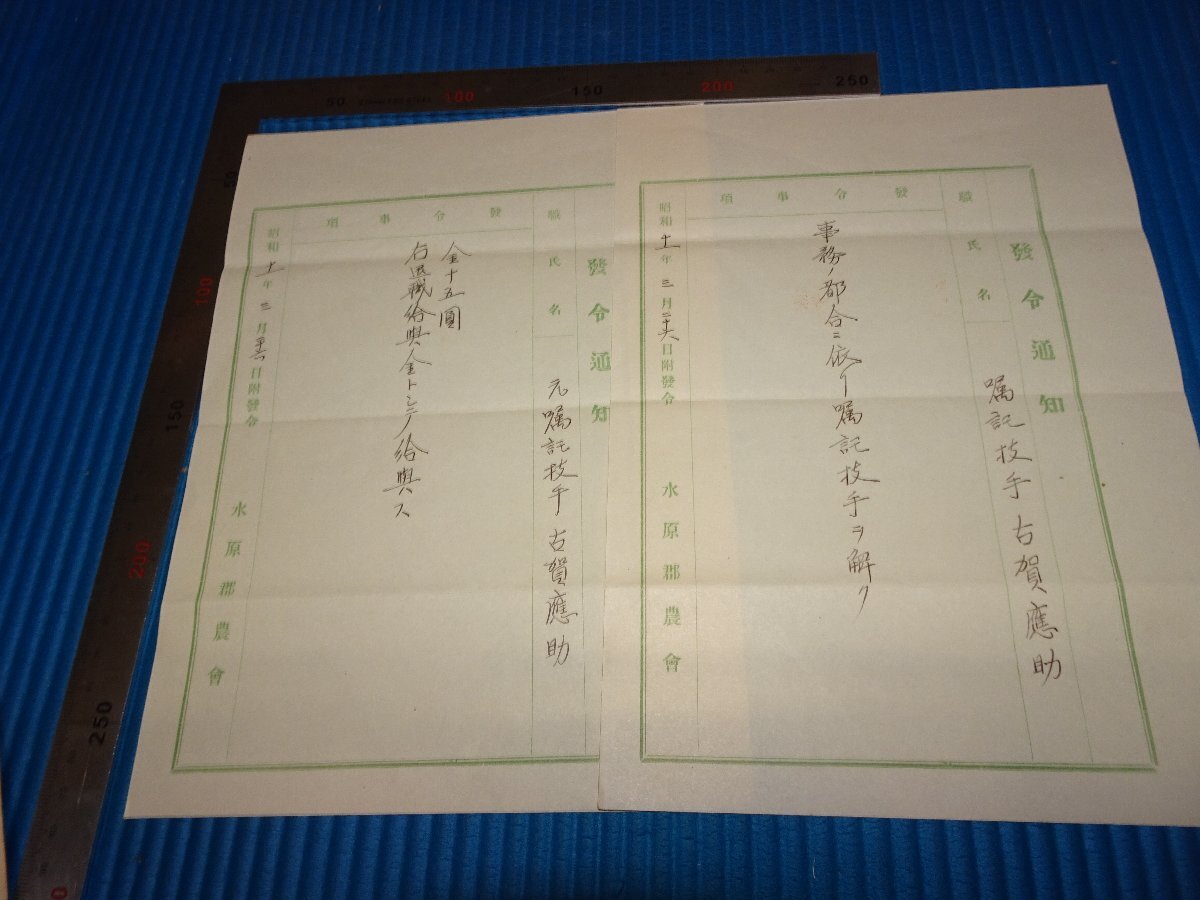 發令通知
職氏名
囑託技手 古賀應助
發令事項
事務ノ都合ニ依リ囑託技手ヲ解ク
昭和十一年三月二十六日附發令
水原郡農會
發令通知
職氏名
元囑託技手 古賀應助
發令事項
金十五圓
右退職給與金トシテ給與ス
昭和十一年三月二十六日附發令
水原郡農會
50 100 150 200 250
100
150
200
250